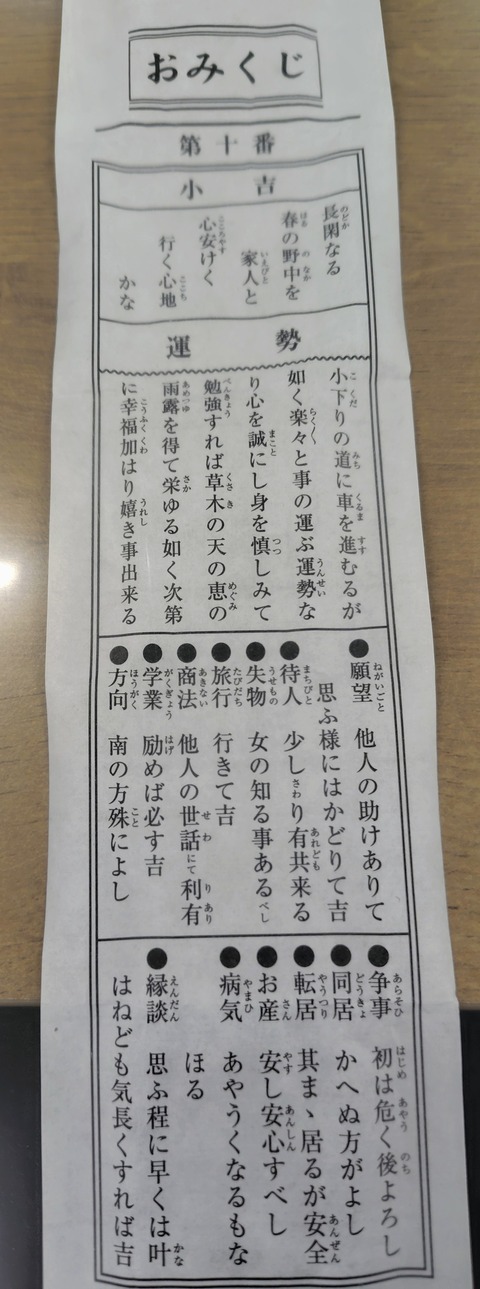 おみくじ
第十番
小吉
長閑なる
春の野中を
家人と
心安けく
行く心地
かな
運勢
小下りの道に車を進むるが
如く楽々と事の運ぶ運勢な
り心を誠にし身を慎しみて
勉強すれば草木の天の恵の
雨露を得て栄ゆる如く次第
に幸福加はり嬉き事出来る
●願望 他人の助けありて
思ふ様にはかどりて吉
●待人 少しさわり有共来る
●失物 女の知る事あるべし
●旅行 行きて吉
●商法 他人の世話にて利有
●学業 励めば必す吉
●方向 南の方殊によし
●争事 初は危く後よろし
●同居 かへぬ方がよし
●転居 其まゝ居るが安全
●お産 安し安心すべし
●病気 あやうくなるもな
ほる
●縁談 思ふ程に早くは叶
はねども気長くすれば吉